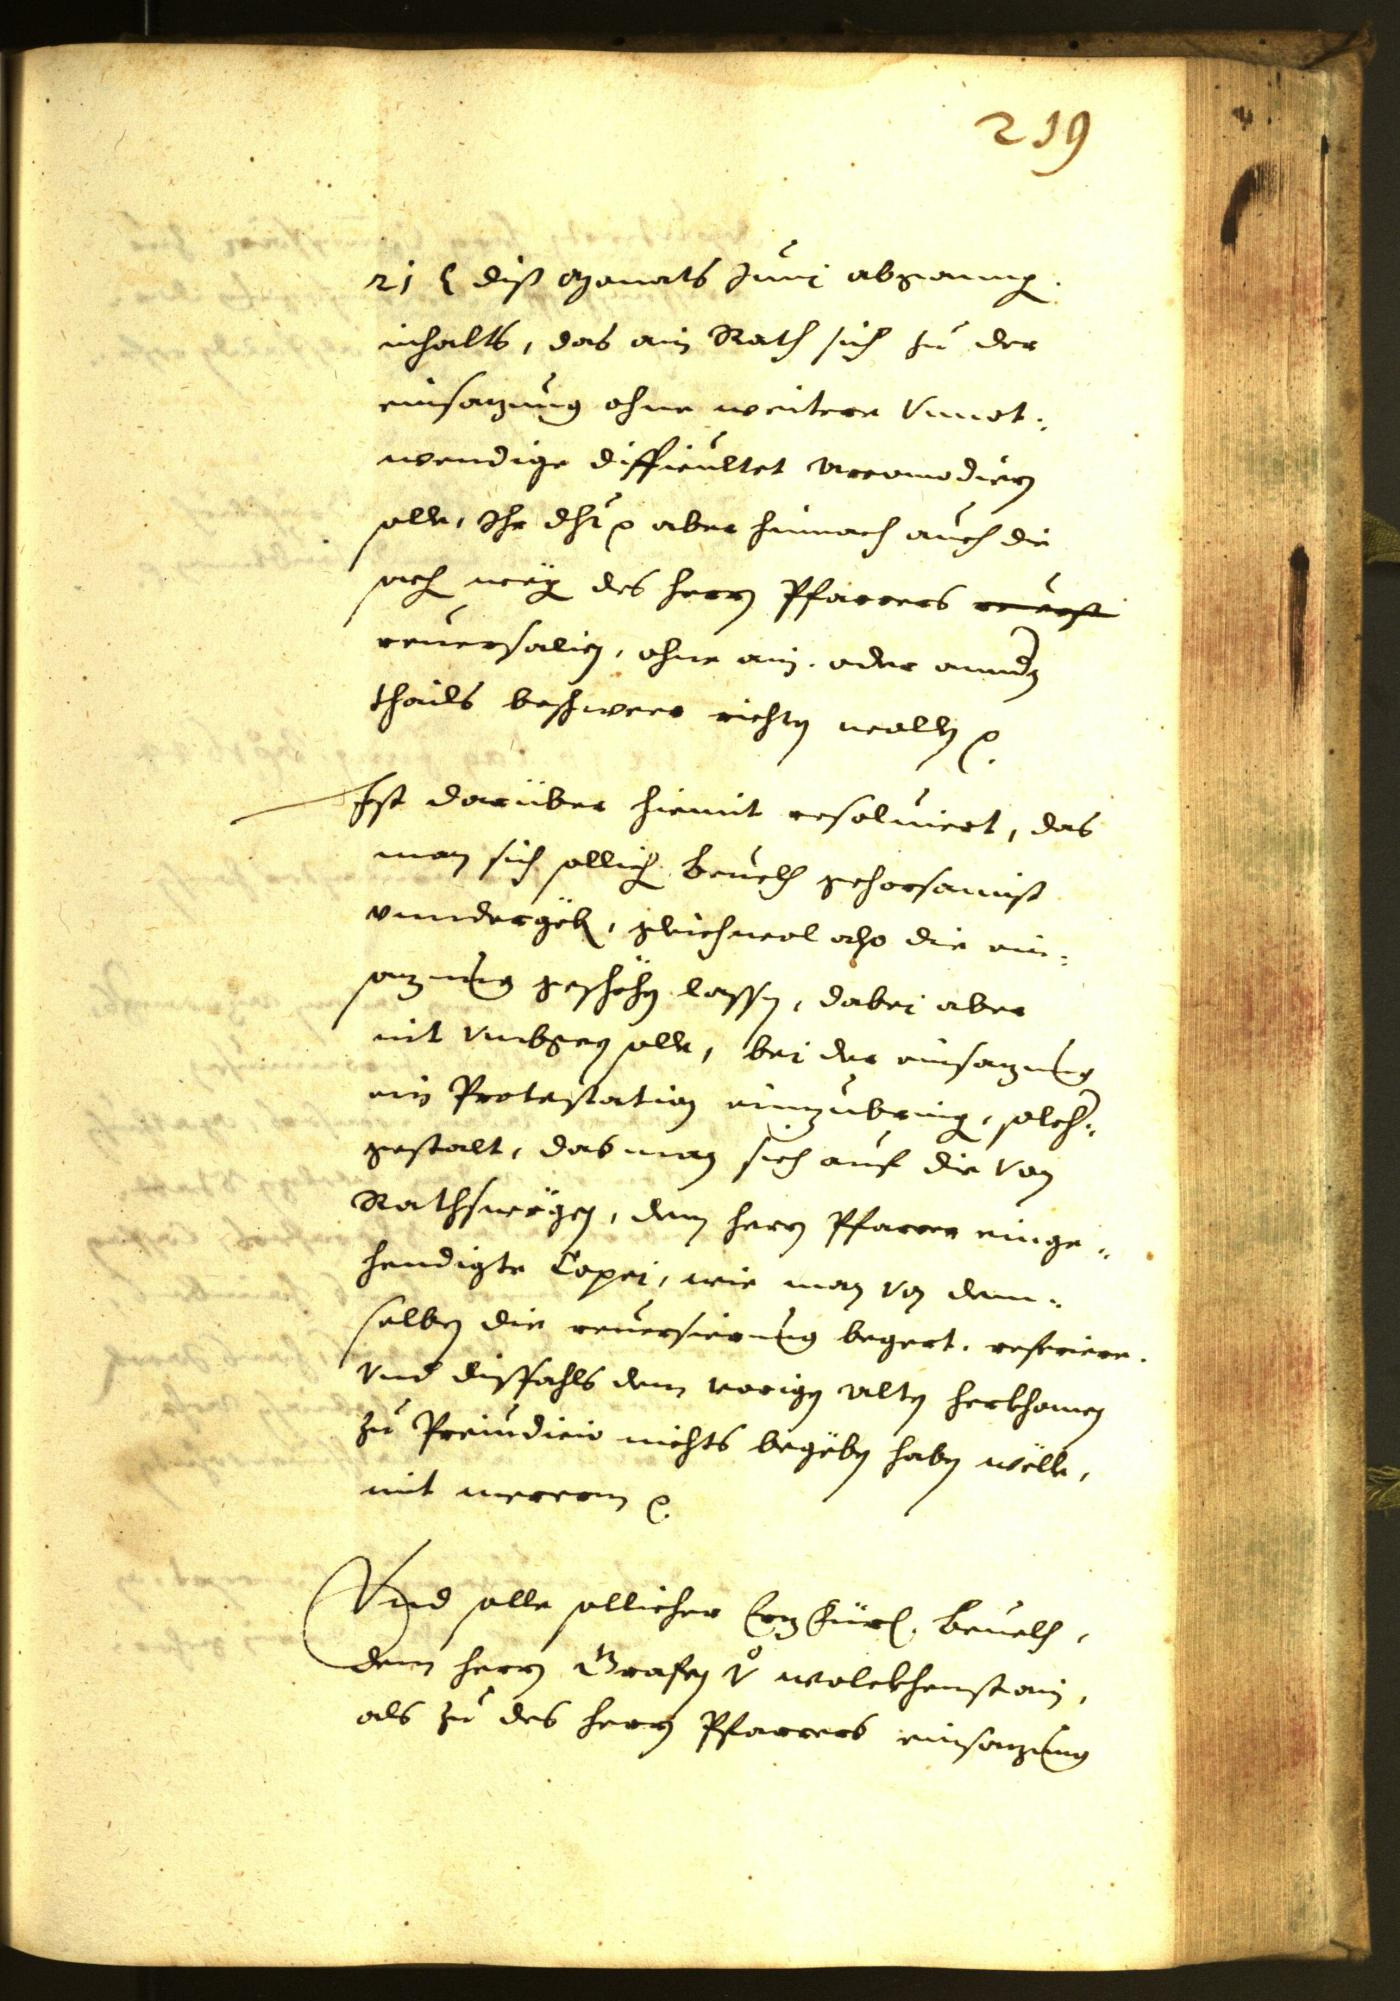 219
21 diß Monats Junj abganng.
inhalts, das ain Rath sich zu der
einsazung ohne weitere Vnnot:
wendige difficultet accomodiern
solle, Ihr dht aber hernach auch die
sach weg. des herrn Pfarrers reuerst
reuersalien, ohne ain. oder annder
thails beschwer richten wolle
Ist darüber hiemit resoluiert, das
man sich sollich beuelch gehorsamist
vnndergeb, gleichwol also die ein:
sazung geschehen lassen, dabei aber
nit Vmbgen solle, bei der einsazung
ein Protestation einzubring, solch:
gestalt, das man sich auf die von
Rathswegen, dem herrn Pfarrer einge:
hendigte Copej, wie man von dem:
selben die reuersierung begert. referiere.
Vnd dißfahls dem vorigen alten herkhomen
zu Preiudicio nichts begeben haben wölle,
mit mererm
Vnd solle sollicher Erzfürl. beuelch,
dem herrn Grafen v wolckhenstain,
als zu des herrn Pfarrers einsazung